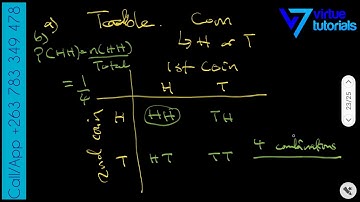 a) Table. Coin
↳ H or T
b)
P(HH) = n(HH)
Total
= 1/4
1st Coin
H T
2nd coin
H HH TH
T HT TT
4 combinations
virtue
tutorials
Call/App +263 783 349 478
23/25